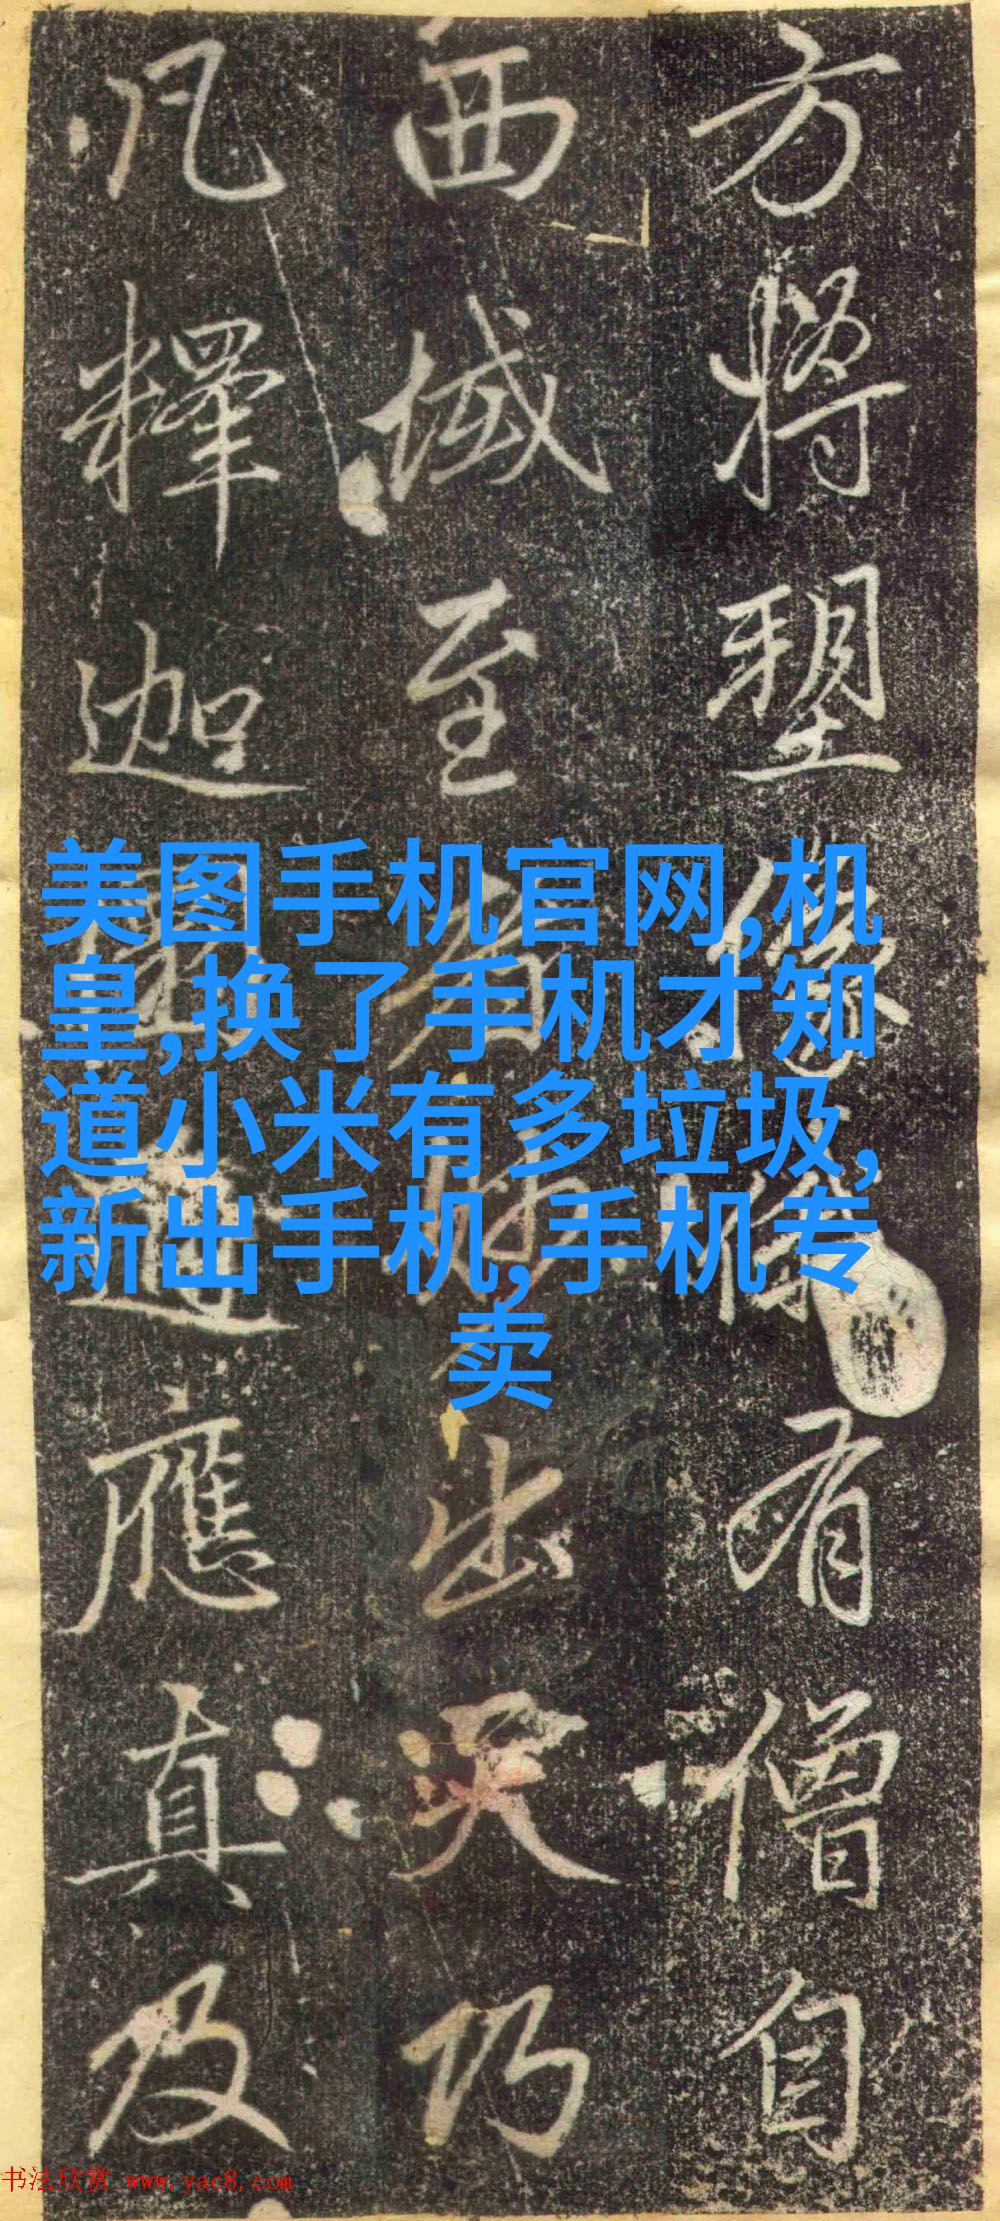 方將塑像有僧自
西域至者出天巧
凡釋迦應真及
美图手机官网,机
皇,换了手机才知
道小米有多垃圾,
新出手机,手机专
卖
书法欣赏 www.yac8.com